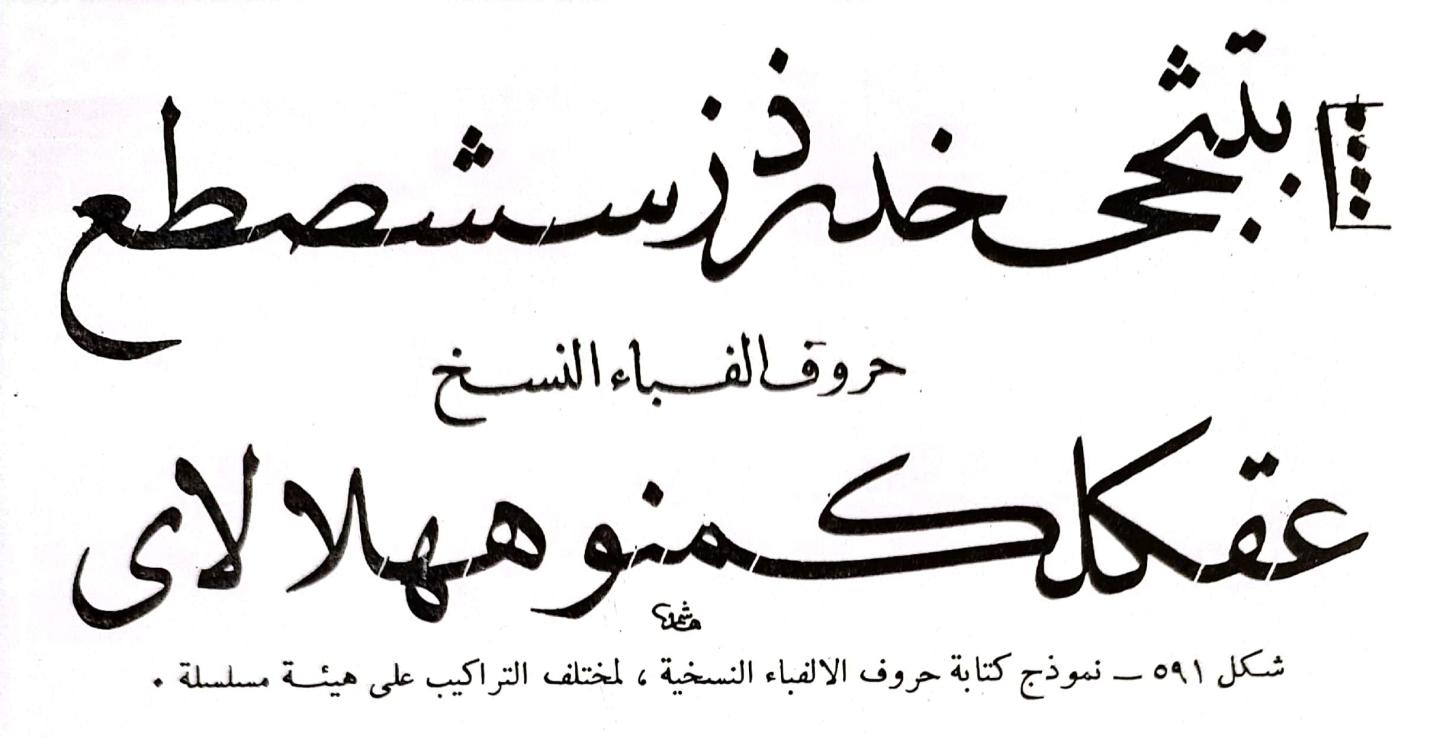 ا بتثجحخد ذرز سشصطع
حروف الفباء النسخ
عقكلكمنو ههلا لاى
هاشم
شكل ٥٩١ ــ نموذج كتابة حروف الالفباء النسخية ، لمختلف التراكيب على هيئة مسلسلة .